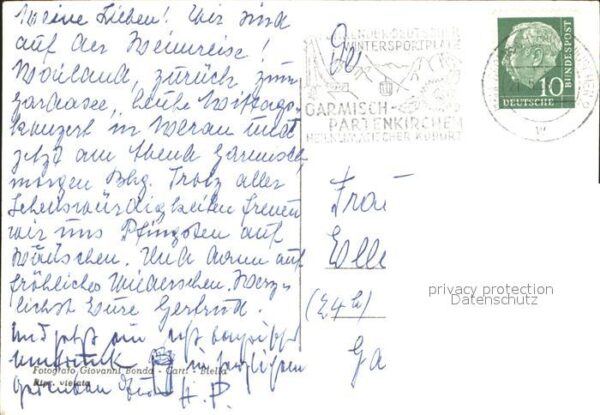 Meine Lieben! Wir sind
auf der Heimreise!
Mailand, zurück zum
Gardasee, heute Mittags-
konzert in Meran und
jetzt am Abend Garmisch,
morgen Bbg. Trotz aller
Sehenswürdigkeiten freuen
wir uns Pfingsten auf
München. Und dann auf
fröhliches Wiedersehen. Herz-
lichst Eure Gertrud.
Und jetzt ein
H. P.
Fotografo Giovanni Bonda - Biella
Ripr. vietata
DEUTSCHER
WINTERSPORTPLATZ
GARMISCH-
PARTENKIRCHEN
HEILKLIMATISCHER KURORT
10
DEUTSCHE
BUNDESPOST
Frau
Elle
(24b)
privacy protection
Datenschutz